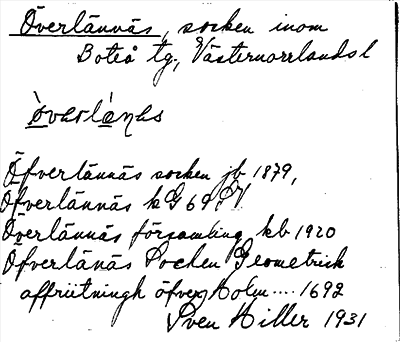 Överlännäs, socken inom
Boteå tg., Västernorrlands l
Öfverlännäs socken jb 1879,
Öfverlännäs kG 69
Överlännäs församling kb 1920
Öfverlänäs Sochen Geometrisk
affriitningh öfver Holm .... 1692
Sven Hiller 1931